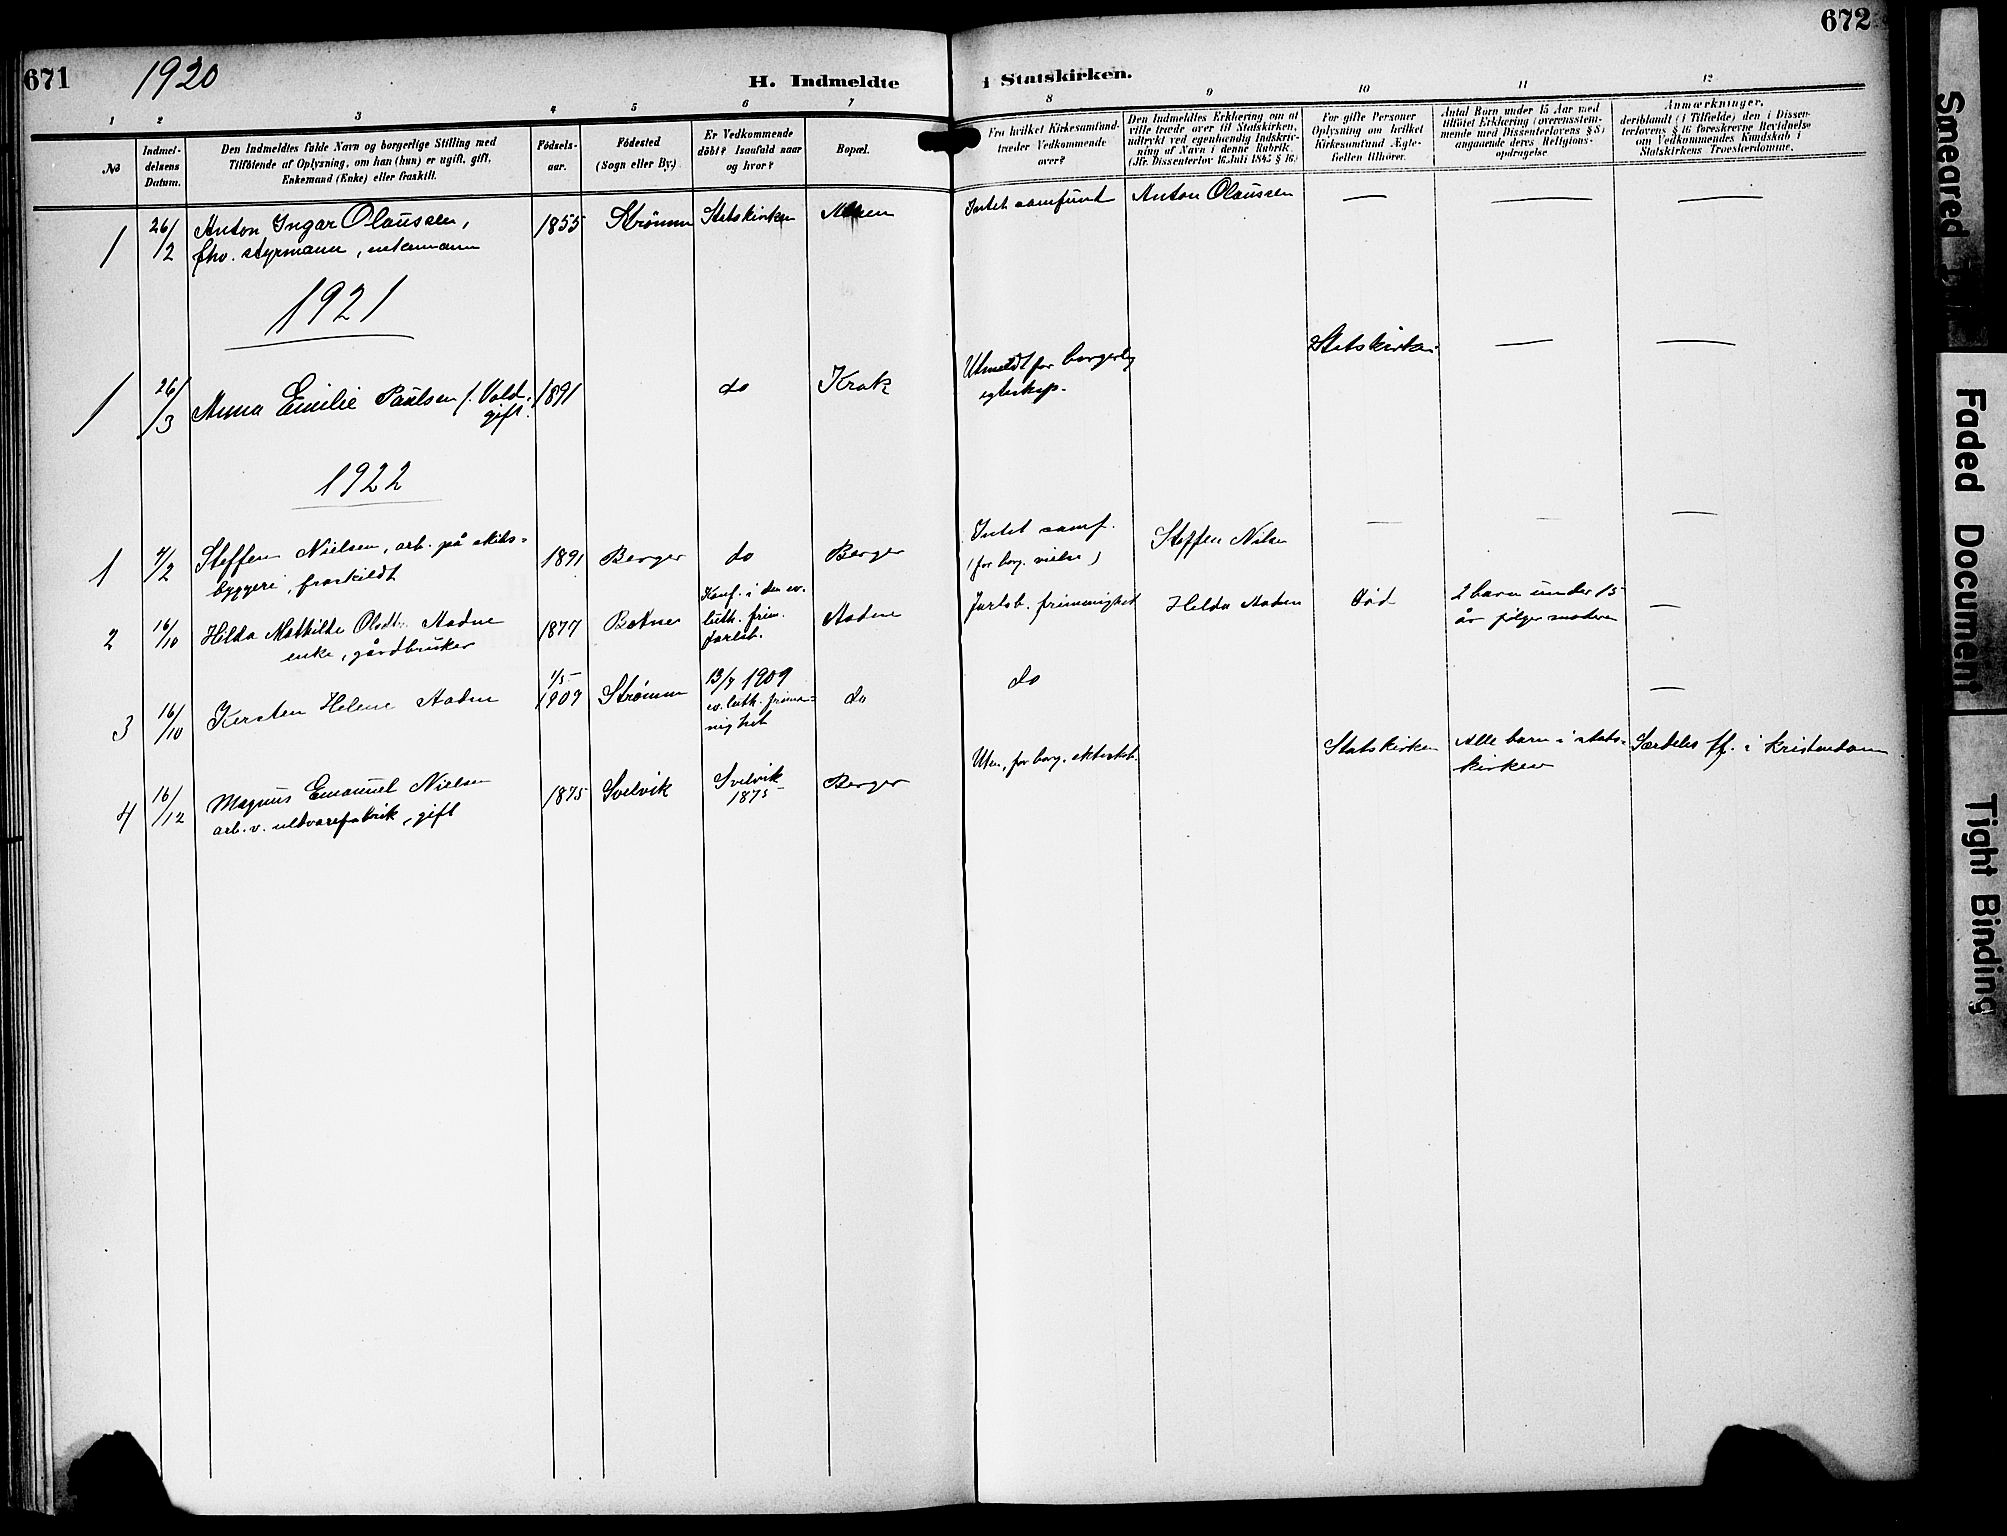 671
1920
H. Indmeldte
i Statskirken.
672
1 2 3 4 5 6 7 8 9 10 11 12
No
Indmel-
delsens
Datum.
Den Indmeldtes fulde Navn og borgerlige Stilling med
Tilföiende af Oplysning, om han (hun) er ugift, gift,
Enkemand (Enke) eller fraskilt.
Födsels-
aar.
Födested
(Sogn eller By.)
Er Vedkommende
döbt? Isaafald naar
og hvor?
Bopæl.
Fra hvilket Kirkesamfund
træder Vedkommende
over?
Den Indmeldtes Erklæring om at
ville træde over til Statskirken,
udtrykt ved egenhændig Indskriv-
ning af Navn i denne Rubrik.
(Jfr. Dissenterlov 16 Juli 1845 § 16.)
For gifte Personer
Oplysning om hvilket
Kirkesamfund Ægte-
fællen tilhører.
Antal Børn under 15 Aar med
tilföiet Erklæring (overensstem-
mende med Dissenterlovens § 8)
angaaende deres Religions-
opdragelse
Anmærkninger,
deriblandt (i Tilfælde) den i Dissen-
terlovens § 16 foreskrevne Bevidnelse
om Vedkommendes Kundskab i
Statskirkens Troeslærdomme.
1 26/2 Anton Ingar Olaussen, 1855 Strømm Statskirken Intet samfunt Anton Olaussen — — —
fhv. styrmann, enkemann
1921
1 26/3 Anna Emilie Paulsen f. Vold, 1891 do Krok Utmeldt for borgerlig Statskirken — —
gift. egteskap.
1922
1 4/2 Steffen Nielsen, arb. på skibs- 1891 Berger do Berger Intet samf. Steffen Nilsen — — —
byggeri, fraskildt (for borg. vielse)
2 16/10 Hilda Mathilde Aadne 1877 Botne Konf. i den ev. Aadne Jarlsb. frimenighed Hilda Aadne død 2 barn under 15 —
enke, gårdbruker luth. frim. år følger moderen
Jarlsb.
3 16/10 Kersten Helene Aadne 1/5 1909 Strømm 13/7 1909 do do —
ev. luth. frime-
nighet
4 16/12 Magnus Emanuel Nielsen 1875 Svelvik Svelvik Berger Utm. for borg. ekteskab. Statskirken Alle barn i stats- Særdeles ff. i kristendom.
arb. v. uldvarefabrik, gift 1875 kirken
Smeared
Faded Document
Tight Binding